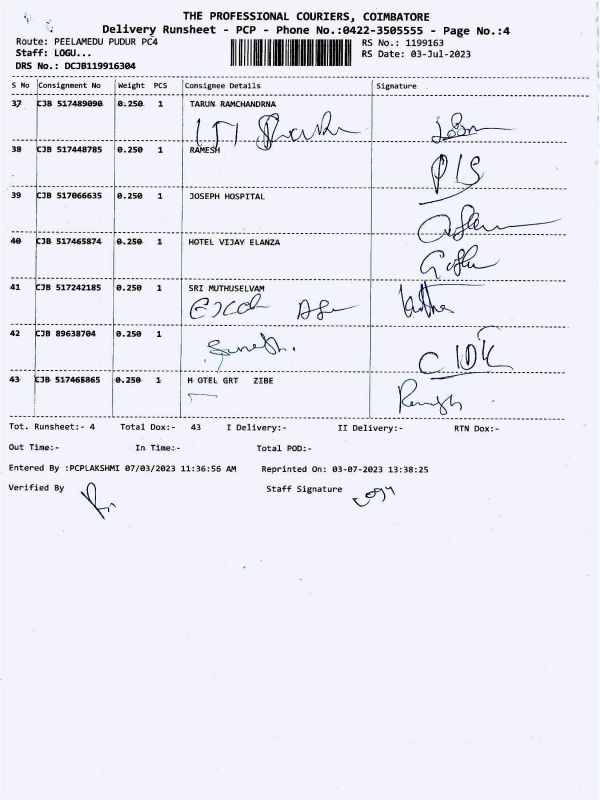 THE PROFESSIONAL COURIERS, COIMBATORE
Delivery Runsheet - PCP - Phone No.:0422-3505555 - Page No.:4
Route: PEELAMEDU PUDUR PC4 RS No.: 1199163
Staff: LOGU... RS Date: 03-Jul-2023
DRS No.: DCJB119916304
S No Consignment No Weight PCS Consignee Details Signature
37 CJB 517489090 0.250 1 TARUN RAMCHANDRNA
38 CJB 517448785 0.250 1 RAMESH
39 CJB 517066635 0.250 1 JOSEPH HOSPITAL
40 CJB 517465874 0.250 1 HOTEL VIJAY ELANZA
41 CJB 517242185 0.250 1 SRI MUTHUSELVAM
42 CJB 89638704 0.250 1
43 CJB 517465865 0.250 1 H OTEL GRT ZIBE
Tot. Runsheet:- 4 Total Dox:- 43 I Delivery:- II Delivery:- RTN Dox:-
Out Time:- In Time:- Total POD:-
Entered By :PCPLAKSHMI 07/03/2023 11:36:56 AM Reprinted On: 03-07-2023 13:38:25
Verified By Staff Signature